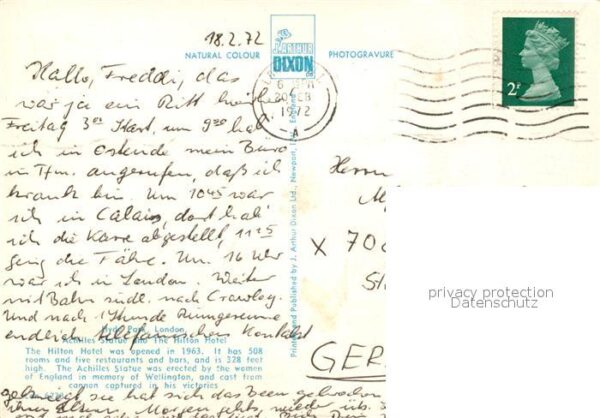 18.2.72
NATURAL COLOUR
J. ARTHUR
DIXON
PHOTOGRAVURE
2P
6
20 FEB
1972
A
Hallo, Freddi, das
war ja ein Ritt
Freitag 3°° Start, um 9³⁰ hab
ich in Ostende mein Büro
in Ffm. angerufen, daß ich
krank bin. Um 10⁴⁵ war
ich in Calais, dort hab'
ich die Karre abgestellt, 11²⁵
ging die Fähre. Um 16 Uhr
war ich in London. Weiter
mit Bahn südl. nach Crawley.
Und nach 1 Stunde
endlich telefonischen Kontakt
Herrn
X 70
GER
Printed and Published by J. Arthur Dixon Ltd., Newport, I.W., England
Hyde Park, London
Achilles Statue and The Hilton Hotel
The Hilton Hotel was opened in 1963. It has 508
rooms and five restaurants and bars, and is 328 feet
high. The Achilles Statue was erected by the women
of England in memory of Wellington, and cast from
cannon captured in his victories
sie hat sich das Bein gebrochen
Morgen geht's wieder
privacy protection
Datenschutz